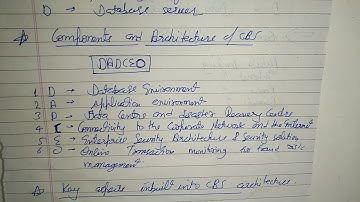 D → Database server
Components and Architecture of CBS
DADCEO
1 D → Database Environment
2 A → Application environment
3 D → Data Centre and Disaster Recovery Centre
4 C → Connectivity to the Corporate Network and the Internet
5 E → Enterprise Security Architecture & Security solution
6 O → Online Transaction monitoring for fraud risk
management.
Key aspects inbuilt into CBS architecture.